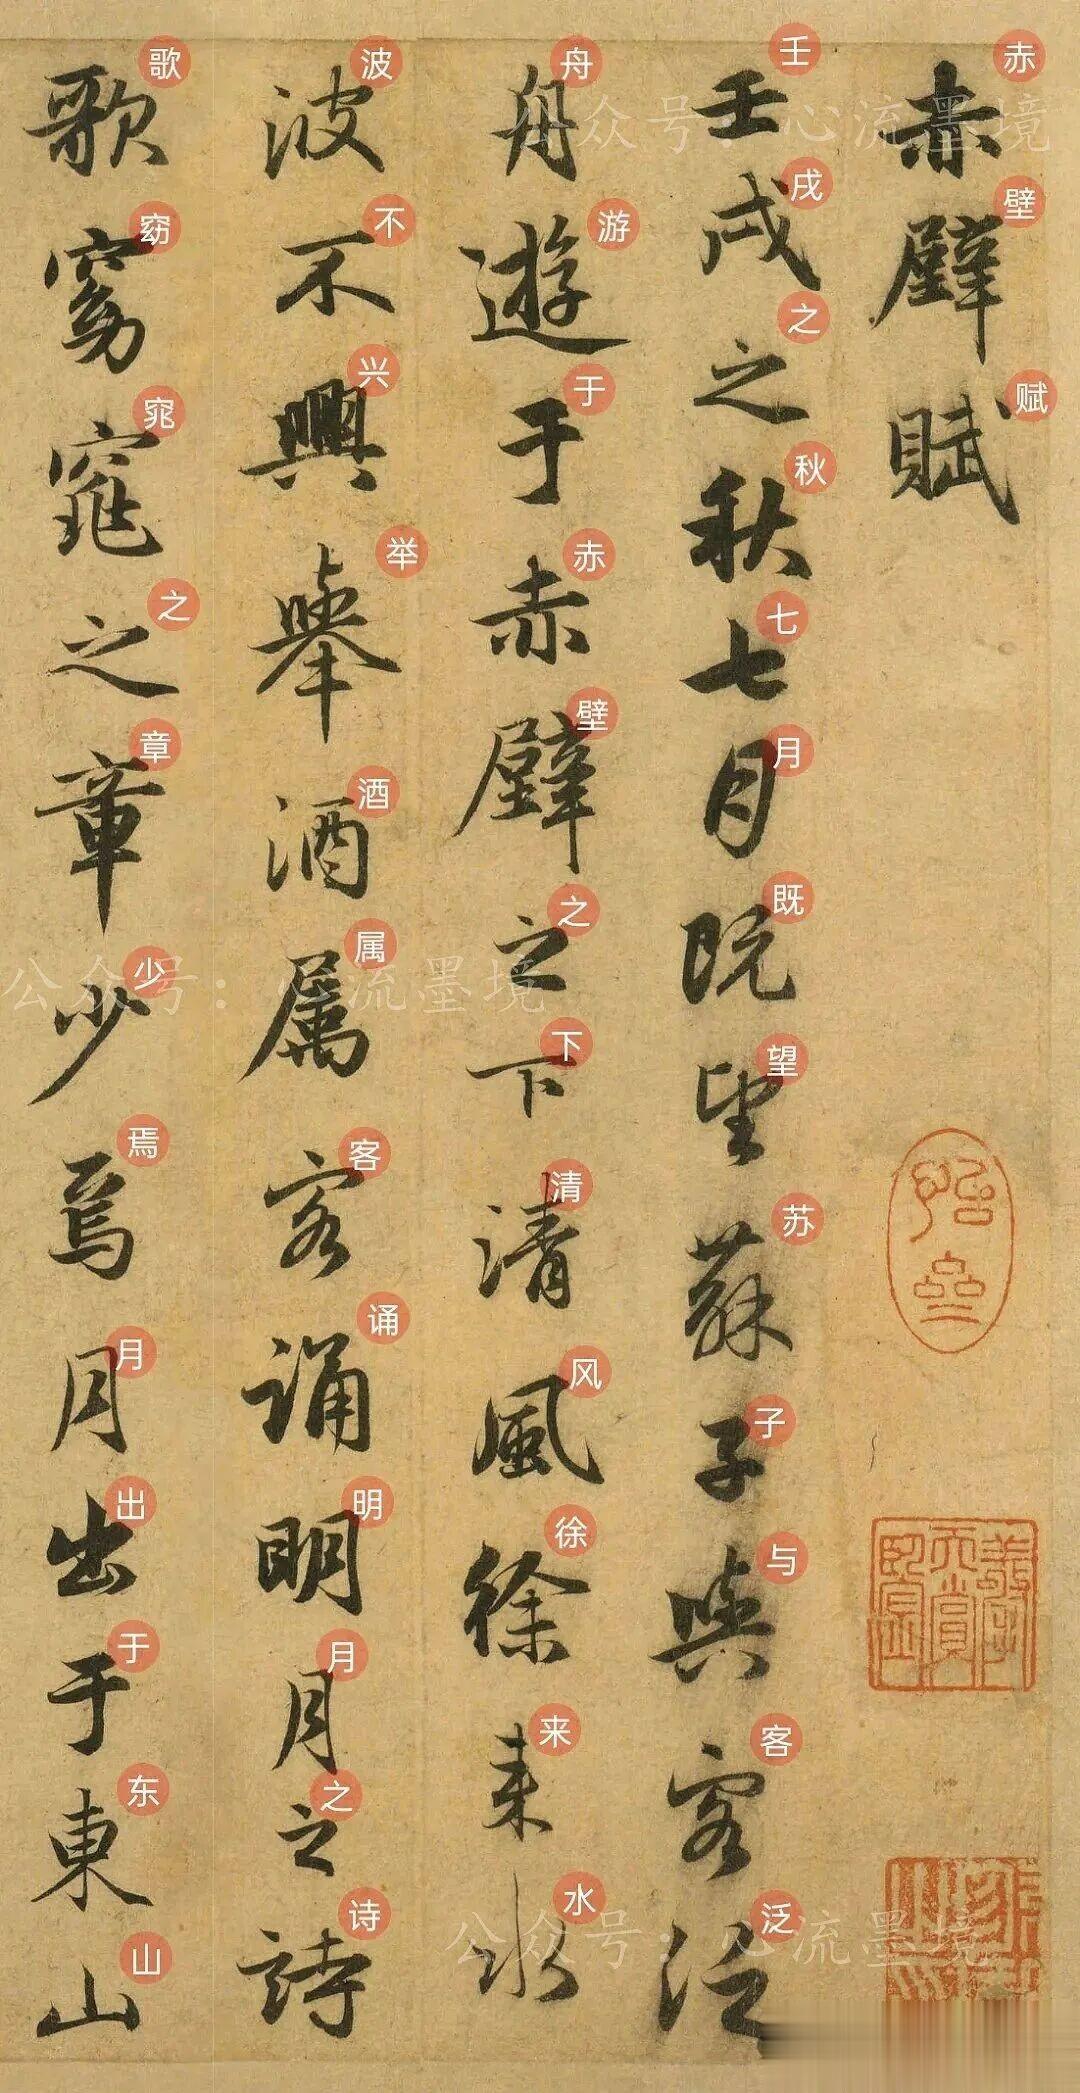 赤壁賦
壬戌之秋七月既望蘇子與客泛
舟遊于赤壁之下清風徐來水
波不興舉酒属客誦明月之詩
歌窈窕之章少焉月出于東山
赤壁赋
壬戌之秋七月既望苏子与客泛
舟游于赤壁之下清风徐来水
波不兴举酒属客诵明月之诗
歌窈窕之章少焉月出于东山
公众号：心流墨境
公众号：心流墨境
公众号：心流墨境